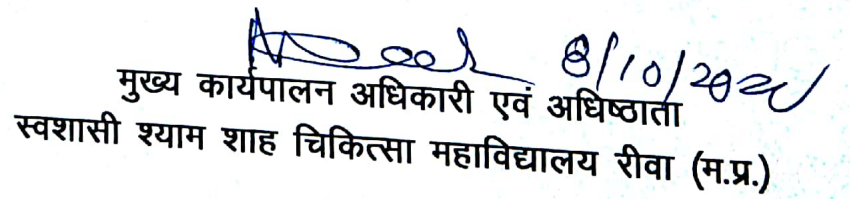 8/10/202
मुख्य कार्यपालन अधिकारी एवं अधिष्ठाता
स्वशासी श्याम शाह चिकित्सा महाविद्यालय रीवा (म.प्र.)